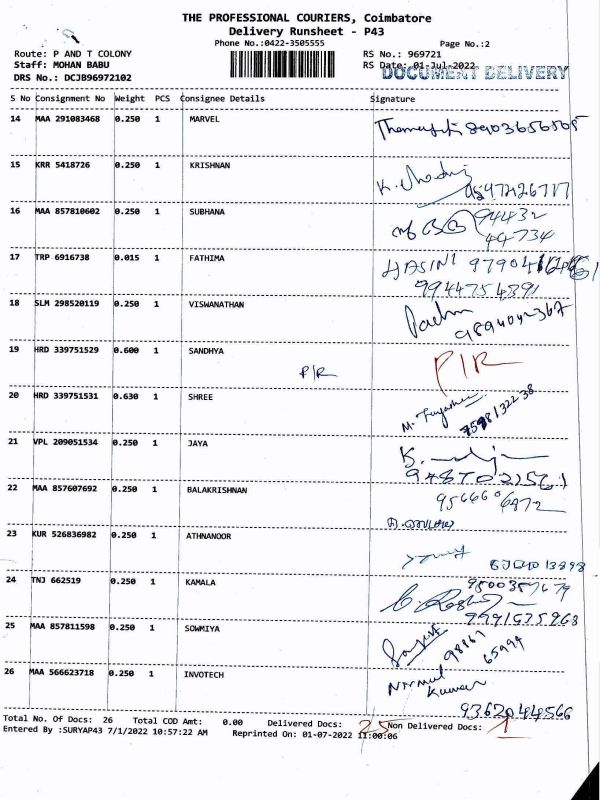 THE PROFESSIONAL COURIERS, Coimbatore
Delivery Runsheet - P43
Phone No.:0422-3505555
Page No.:2
Route: P AND T COLONY
RS No.: 969721
Staff: MOHAN BABU
RS Date: 01-Jul-2022
DOCUMENT DELIVERY
DRS No.: DCJB96972102
S No Consignment No Weight PCS Consignee Details Signature
14 MAA 291083468 0.250 1 MARVEL
8903656565
15 KRR 5418726 0.250 1 KRISHNAN
16 MAA 857810602 0.250 1 SUBHANA
94432
44734
17 TRP 6916738 0.015 1 FATHIMA
HASINI
9944754391
18 SLM 298520119 0.250 1 VISWANATHAN
9894042367
19 HRD 339751529 0.600 1 SANDHYA
P/R P/R
20 HRD 339751531 0.630 1 SHREE
21 VPL 209051534 0.250 1 JAYA
22 MAA 857607692 0.250 1 BALAKRISHNAN
23 KUR 526836982 0.250 1 ATHNANOOR
24 TNJ 662519 0.250 1 KAMALA
25 MAA 857811598 0.250 1 SOWMIYA
98867
65994
26 MAA 566623718 0.250 1 INVOTECH
Nirmal
Kumar
9362044566
Total No. Of Docs: 26 Total COD Amt: 0.00 Delivered Docs: 25 Non Delivered Docs: 1
Entered By :SURYAP43 7/1/2022 10:57:22 AM Reprinted On: 01-07-2022 11:00:06